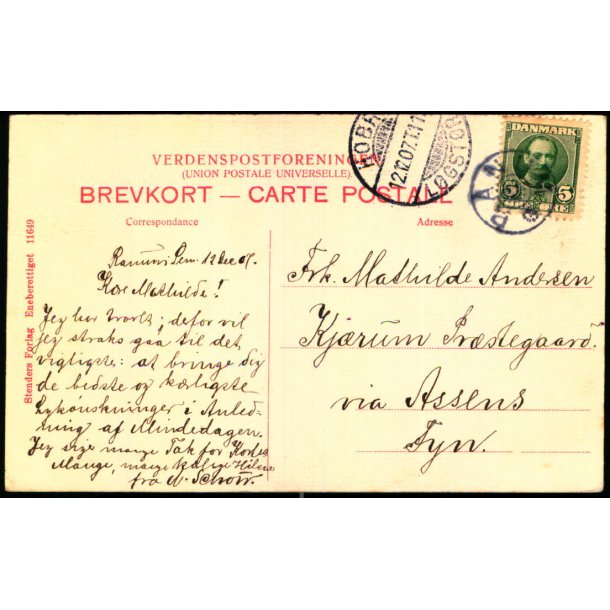 VERDENSPOSTFORENINGEN
(UNION POSTALE UNIVERSELLE)
BREVKORT — CARTE POSTALE
Correspondance
Adresse
Stenders Forlag Eneberettiget 11649
HOBR
12.12.07.
LØGSTØR
RAN
DANMARK
5 5
ØRE
Ranum Sem. 12 Dec 07.
Kære Mathilde!
Jeg har travlt; derfor vil
jeg straks gaa til det
vigtigste: at bringe Dig
de bedste og kærligste
Lykønskninger i Anled-
ning af Mindedagen.
Jeg siger mange Tak for Kortet
Mange, mange kærlige Hilsner
fra N. Schou.
Frk. Mathilde Andersen
Kjærum Præstegaard.
via Assens
Fyn.